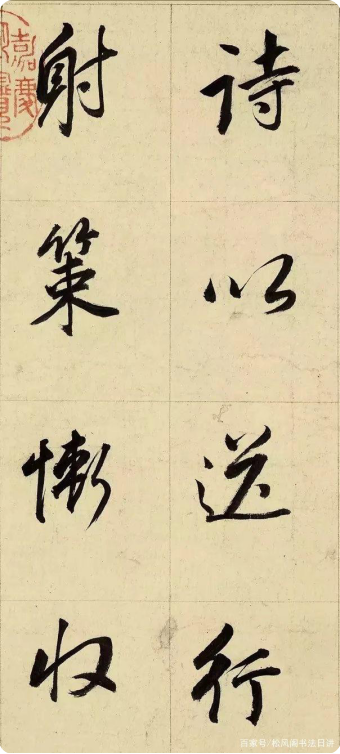 詩以送行
射策慚收
嘉慶
百家号/松风阁书法日讲